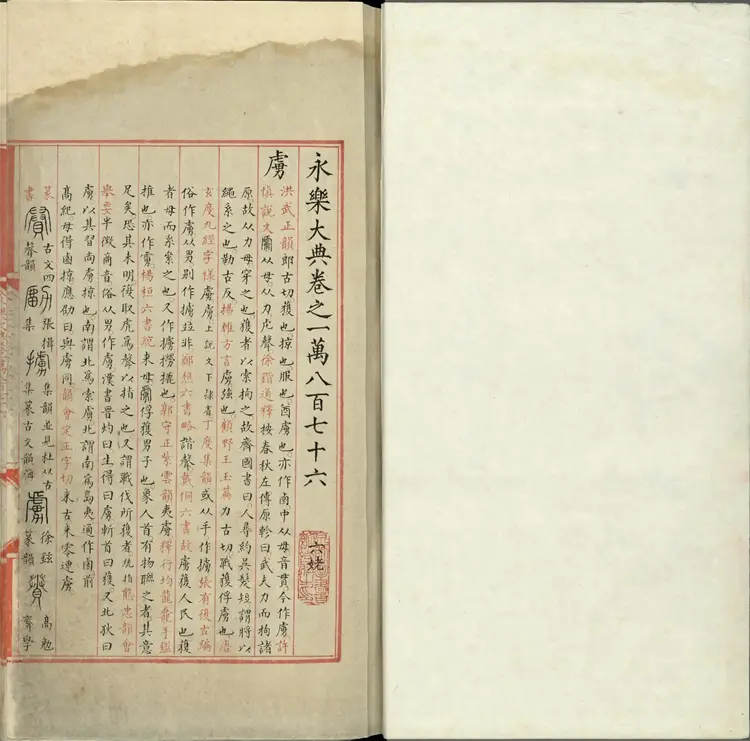 永樂大典卷之一萬八百七十六
六姥
虜
洪武正韻郎古切獲也掠也服也酋虜也亦作鹵中从毋音貫今作虜許
慎說文从毋从力虍聲徐鍇通釋按春秋左傳原軫曰武夫力而拘諸
原故从力毋穿之也獲者以索拘之故齊國書曰人尋約吳髮短謂將以
繩系之也勒古反揚雄方言虜強也顧野王玉篇力古切戰獲俘虜也唐
玄度九經字樣虜虜上說文下隸省丁度集韻或从手作擄張有復古編
俗作虜从男別作擄並非鄭樵六書略諧聲戴侗六書故虜獲人民也獲
者毋而系累之也又作擄撈擄也郭守正紫雲韻夷虜釋行均龍龕手鑑
推也亦作楊桓六書統來母俘獲男子也象人首有物聯之者其意
足矣恐其未明復取虎爲聲以指之也又謂戰伐所獲者統指熊忠韻會
舉要半徵商音俗从男作虜漢書晉灼曰生得曰虜斬首曰獲又北狄曰
虜以其習尚虜掠也南謂北爲索虜北謂南爲島夷通作鹵前
高紀毋得鹵掠應劭曰與虜同韻會定正字切來古來零連虜
篆書 古文四聲韻 張揖集 集韻並見杜从古集篆古文韻海 徐鉉篆韻 高勉齋學